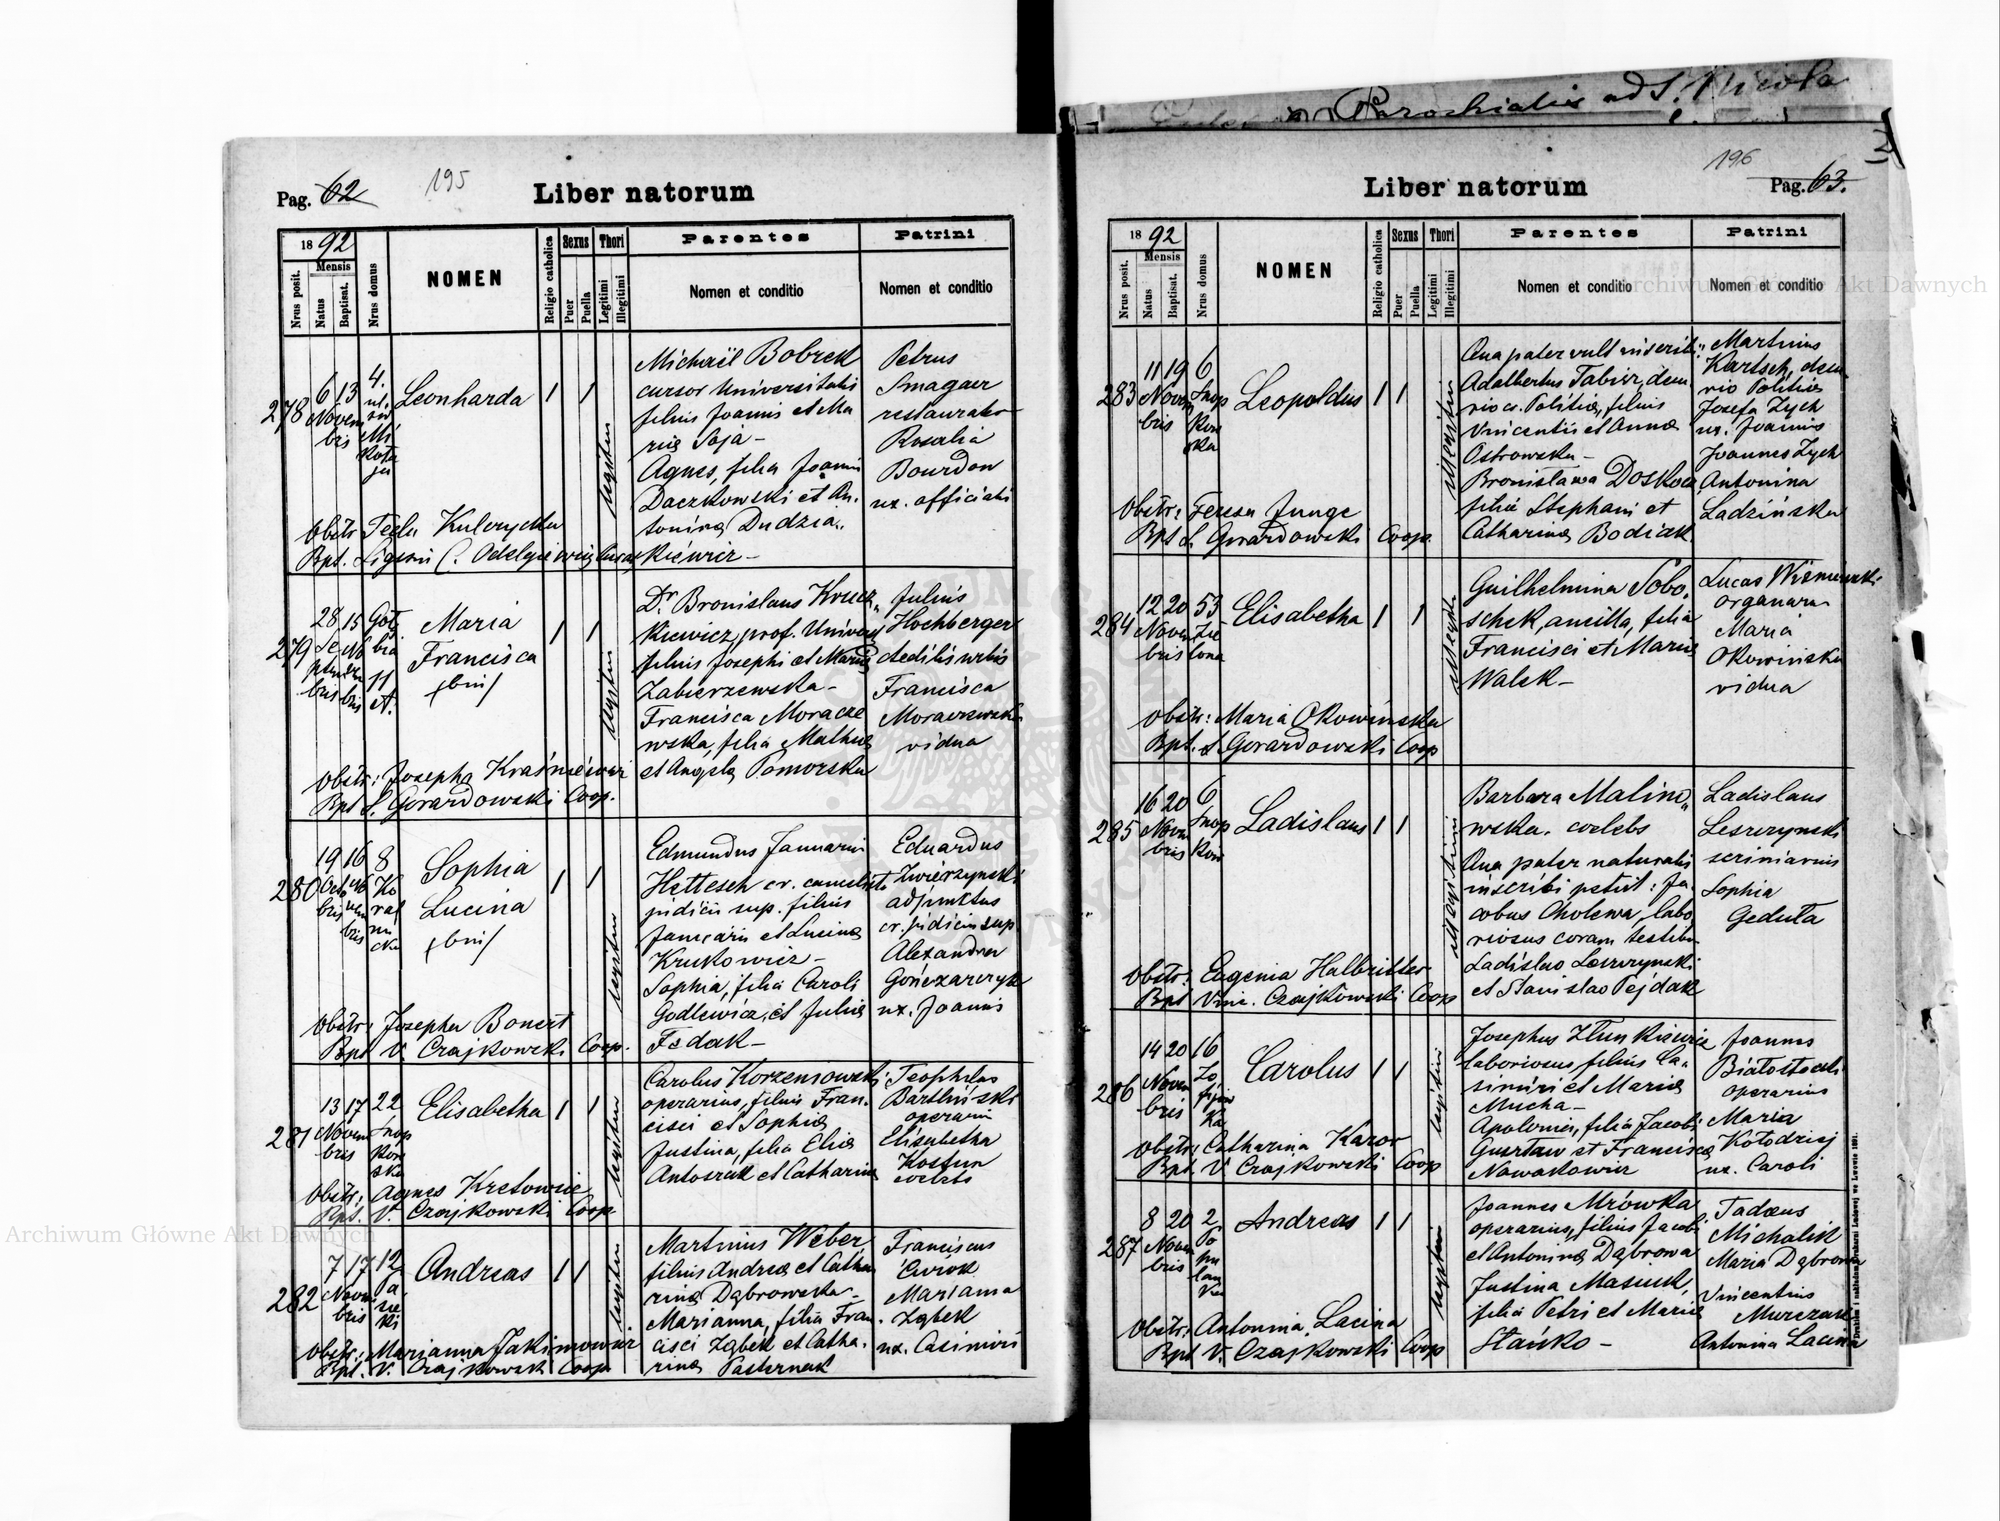 Parochialis ad S. Nicola
Pag. 62
195
Liber natorum
1892
Mensis
Nrus posit.
Natus
Baptisat.
Nrus domus
NOMEN
Religio catholica
Sexus
Puer
Puella
Thori
Legitimi
Illegitimi
Parentes
Nomen et conditio
Patrini
Nomen et conditio
278
6 13 4.
Novem
bris
Leonharda
1 1
legitimi
Michaël Bobrek
cursor Universitatis
filius Joannis et Ma
riæ Soja –
Agnes, filia Joannis
Daczkowski et An.
toninæ Dudzia„
kiewicz –
Petrus
Smagaer
restaurator
Rosalia
Bourdon
ux. officialis
Obstr. Tecla
Bpt.
279
28 15
11
Maria
Francisca
/bin/
1 1
legitimi
Dr Bronislaus Krucz„
kiewicz, prof. Univers
filius Josephi et Mariæ
Zabierzewska –
Francisca Moracze
wska, filia Mathiæ
et Angela Pomorska
Julius
Hochberger
Aedilis urbis
Francisca
Moraczewska
vidua
Obstr: Josepha Kraśniewicz
Bpt S. Gorardowski Coop.
280
19 16 8
Octo
bris
Sophia
Lucina
/bin/
1 1
legitimi
Edmundus Januarius
Hettesch cr. cancelista
judicii sup. filius
Januarii et Lucinæ
Krukowicz –
Sophia, filia Caroli
Godlewicz, et Juliæ
Fedak –
Eduardus
Zwierzynski
adjunctus
cr. judicii sup.
Alexandra
Gonczarczyk
ux. Joannis
Obstr: Josepha Bonert
Bpt V. Czajkowski Coop.
281
13 17 22
Novem
bris
Elisabetha
1 1
legitimi
Carolus Korzeniowski
operarius, filius Fran.
cisci et Sophiæ
Justina, filia Eliæ
Antoszak et Catharinæ
Teophilus
Bartliński
operarius
Elisabetha
Kostun
coelebs
Obstr: Agnes Kretowicz
Bpt. V. Czajkowski Coop
282
7 17 12
Novem
bris
Andreas
1 1
legitimi
Martinus Weber
filius Andreæ et Catha
rinæ Dąbrowska –
Marianna, filia Fran.
cisci Ząbek et Catha.
rinæ Pasternak
Franciscus
Marianna
Ząbek
ux. Casimiri
Obstr: Marianna Jakimowicz
Bpt. V. Czajkowski Coop
Liber natorum
196
Pag. 63.
1892
Mensis
Nrus posit.
Natus
Baptisat.
Nrus domus
NOMEN
Religio catholica
Sexus
Puer
Puella
Thori
Legitimi
Illegitimi
Parentes
Nomen et conditio
Patrini
Nomen et conditio
283
11 19 6
Novem
bris
Snop
kow
ska
Leopoldus
1 1
illegitimi
Qua pater vult inscribi:
Adalbertus Tabisz, dem.
rio cr. Politiæ, filius
Vincentii et Annæ
Ostrowska –
Bronislawa Doskocz
filia Stephani et
Catharinæ Bodiak
Martinus
Kartsch,
Politiæ
Josefa Zych
ux. Joannis
Joannes Zych
Antonina
Ladzińska
Obstr: Teresa Junge
Bpt S. Gorardowski Coop.
284
12 20 53
Novem
bris
Zie
lona
Elisabetha
1 1
illegitimi
Guilhelmina Sobo.
schek, ancilla, filia
Francisci et Mariæ
Walek –
Lucas Wiśniewski
Maria
Okowińska
vidua
Obstr: Maria Okowińska
Bpt. S. Gorardowski Coop
285
16 20 6
Novem
bris
Snop
kow
Ladislaus
1 1
illegitimi
Barbara Malino„
wska, coelebs
Qua pater naturalis
inscribi petiit: Ja.
cobus Cholewa, labo
riosus coram testibus
Ladislao Leszczynski
et Stanislao Pejdak
Ladislaus
Leszczynski
scriniarius
Sophia
Geduła
Obstr: Eugenia Halbritter
Bpt Vinc. Czajkowski Coop
286
14 20 16
Novem
bris
Zo
fijów
ka
Carolus
1 1
legitimi
Josephus Zlunkiewicz
laboriosus filius Ca„
simiri et Mariæ
Mucha –
Apolonia, filia Jacobi
Gustaw et Franciscæ
Nowakowicz
Joannes
operarius
Maria
Kołodziej
ux. Caroli
Obstr: Catharina Kazor
Bpt. V. Czajkowski Coop
287
8 20 2
Novem
bris
Andreas
1 1
legitimi
Joannes Mrówka
operarius, filius Jacobi
et Antoninæ Dąbrowa
Justina Masiuk,
filia Petri et Mariæ
Stańko –
Tadæus
Michalik
Maria Dąbrowa
Vincentius
Murczak
Antonina Lacina
Obstr: Antonina Lacina
Bpt V. Czajkowski Coop
Archiwum Główne Akt Dawnych
Archiwum Główne Akt Dawnych